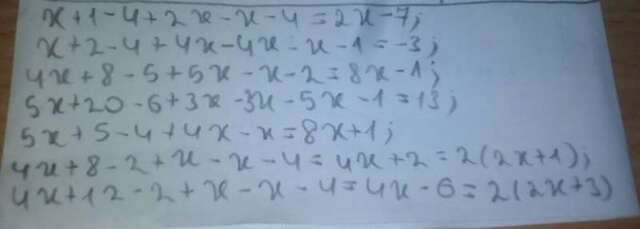 x+1-4+2x-x-4=2x-7;
x+2-4+4x-4x-x-1=-3;
4x+8-5+5x-x-2=8x-1;
5x+20-6+3x-3x-5x-1=13;
5x+5-4+4x-x=8x+1;
4x+8-2+x-x-4=4x+2=2(2x+1);
4x+12-2+x-x-4=4x-6=2(2x+3)